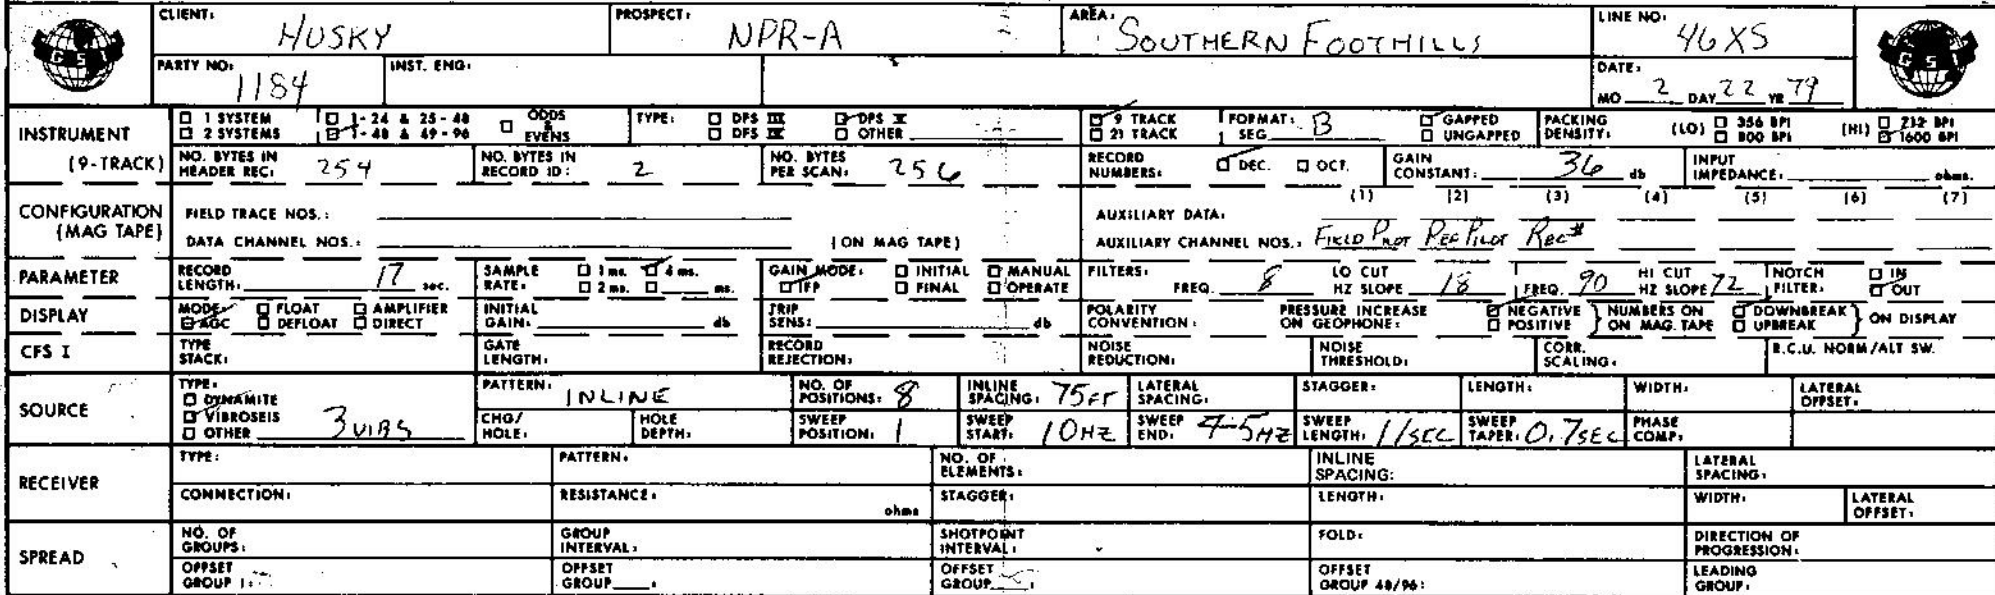 CLIENT: HUSKY PROSPECT: NPR-A AREA: SOUTHERN FOOTHILLS LINE NO: 46XS
GSI GSI
PARTY NO: 1184 INST. ENG: DATE: MO 2 DAY 22 YR 79
INSTRUMENT (9-TRACK)
☐ 1 SYSTEM ☐ 1-24 & 25-48 ☐ ODDS & EVENS TYPE: ☐ DFS III ☑ DFS V ☑ 9 TRACK FORMAT: SEG B ☑ GAPPED PACKING DENSITY: (LO) ☐ 356 BPI (HI) ☐ 232 BPI
☐ 2 SYSTEMS ☑ 1-48 & 49-96 ☐ DFS IV ☐ OTHER ☐ 21 TRACK ☐ UNGAPPED ☐ 800 BPI ☑ 1600 BPI
NO. BYTES IN HEADER REC: 254 NO. BYTES IN RECORD ID: 2 NO. BYTES PER SCAN: 256 RECORD NUMBERS: ☑ DEC. ☐ OCT. GAIN CONSTANT: 36 db INPUT IMPEDANCE: ohms.
CONFIGURATION (MAG TAPE)
FIELD TRACE NOS.: AUXILIARY DATA: (1) (2) (3) (4) (5) (6) (7)
DATA CHANNEL NOS.: (ON MAG TAPE) AUXILIARY CHANNEL NOS.: FIELD PILOT REF PILOT REC#
PARAMETER RECORD LENGTH: 17 sec. SAMPLE RATE: ☐ 1 ms. ☑ 4 ms. ☐ 2 ms. ☐ ms. GAIN MODE: ☑ IFP ☐ INITIAL ☐ FINAL ☐ MANUAL ☐ OPERATE FILTERS: FREQ. 8 LO CUT HZ SLOPE 18 FREQ. 90 HI CUT HZ SLOPE 72 NOTCH FILTER: ☐ IN ☑ OUT
DISPLAY MODE: ☑ AGC ☐ FLOAT ☐ DEFLOAT ☐ AMPLIFIER ☐ DIRECT INITIAL GAIN: db TRIP SENS: db POLARITY CONVENTION: PRESSURE INCREASE ON GEOPHONE: ☑ NEGATIVE ☐ POSITIVE } NUMBERS ON ON MAG. TAPE ☑ DOWNBREAK ☐ UPBREAK } ON DISPLAY
CFS I TYPE STACK: GATE LENGTH: RECORD REJECTION: NOISE REDUCTION: NOISE THRESHOLD: CORR. SCALING: R.C.U. NORM/ALT SW.
SOURCE
TYPE: ☐ DYNAMITE ☑ VIBROSEIS ☐ OTHER 3 VIBS PATTERN: INLINE NO. OF POSITIONS: 8 INLINE SPACING: 75FT LATERAL SPACING: STAGGER: LENGTH: WIDTH: LATERAL OFFSET:
CHG/HOLE: HOLE DEPTH: SWEEP POSITION: 1 SWEEP START: 10HZ SWEEP END: 45HZ SWEEP LENGTH: 11SEC SWEEP TAPER: 0.7SEC PHASE COMP:
RECEIVER
TYPE: PATTERN: NO. OF ELEMENTS: INLINE SPACING: LATERAL SPACING:
CONNECTION: RESISTANCE: ohms STAGGER: LENGTH: WIDTH: LATERAL OFFSET:
SPREAD
NO. OF GROUPS: GROUP INTERVAL: SHOTPOINT INTERVAL: FOLD: DIRECTION OF PROGRESSION:
OFFSET GROUP 1: OFFSET GROUP : OFFSET GROUP : OFFSET GROUP 48/96: LEADING GROUP: